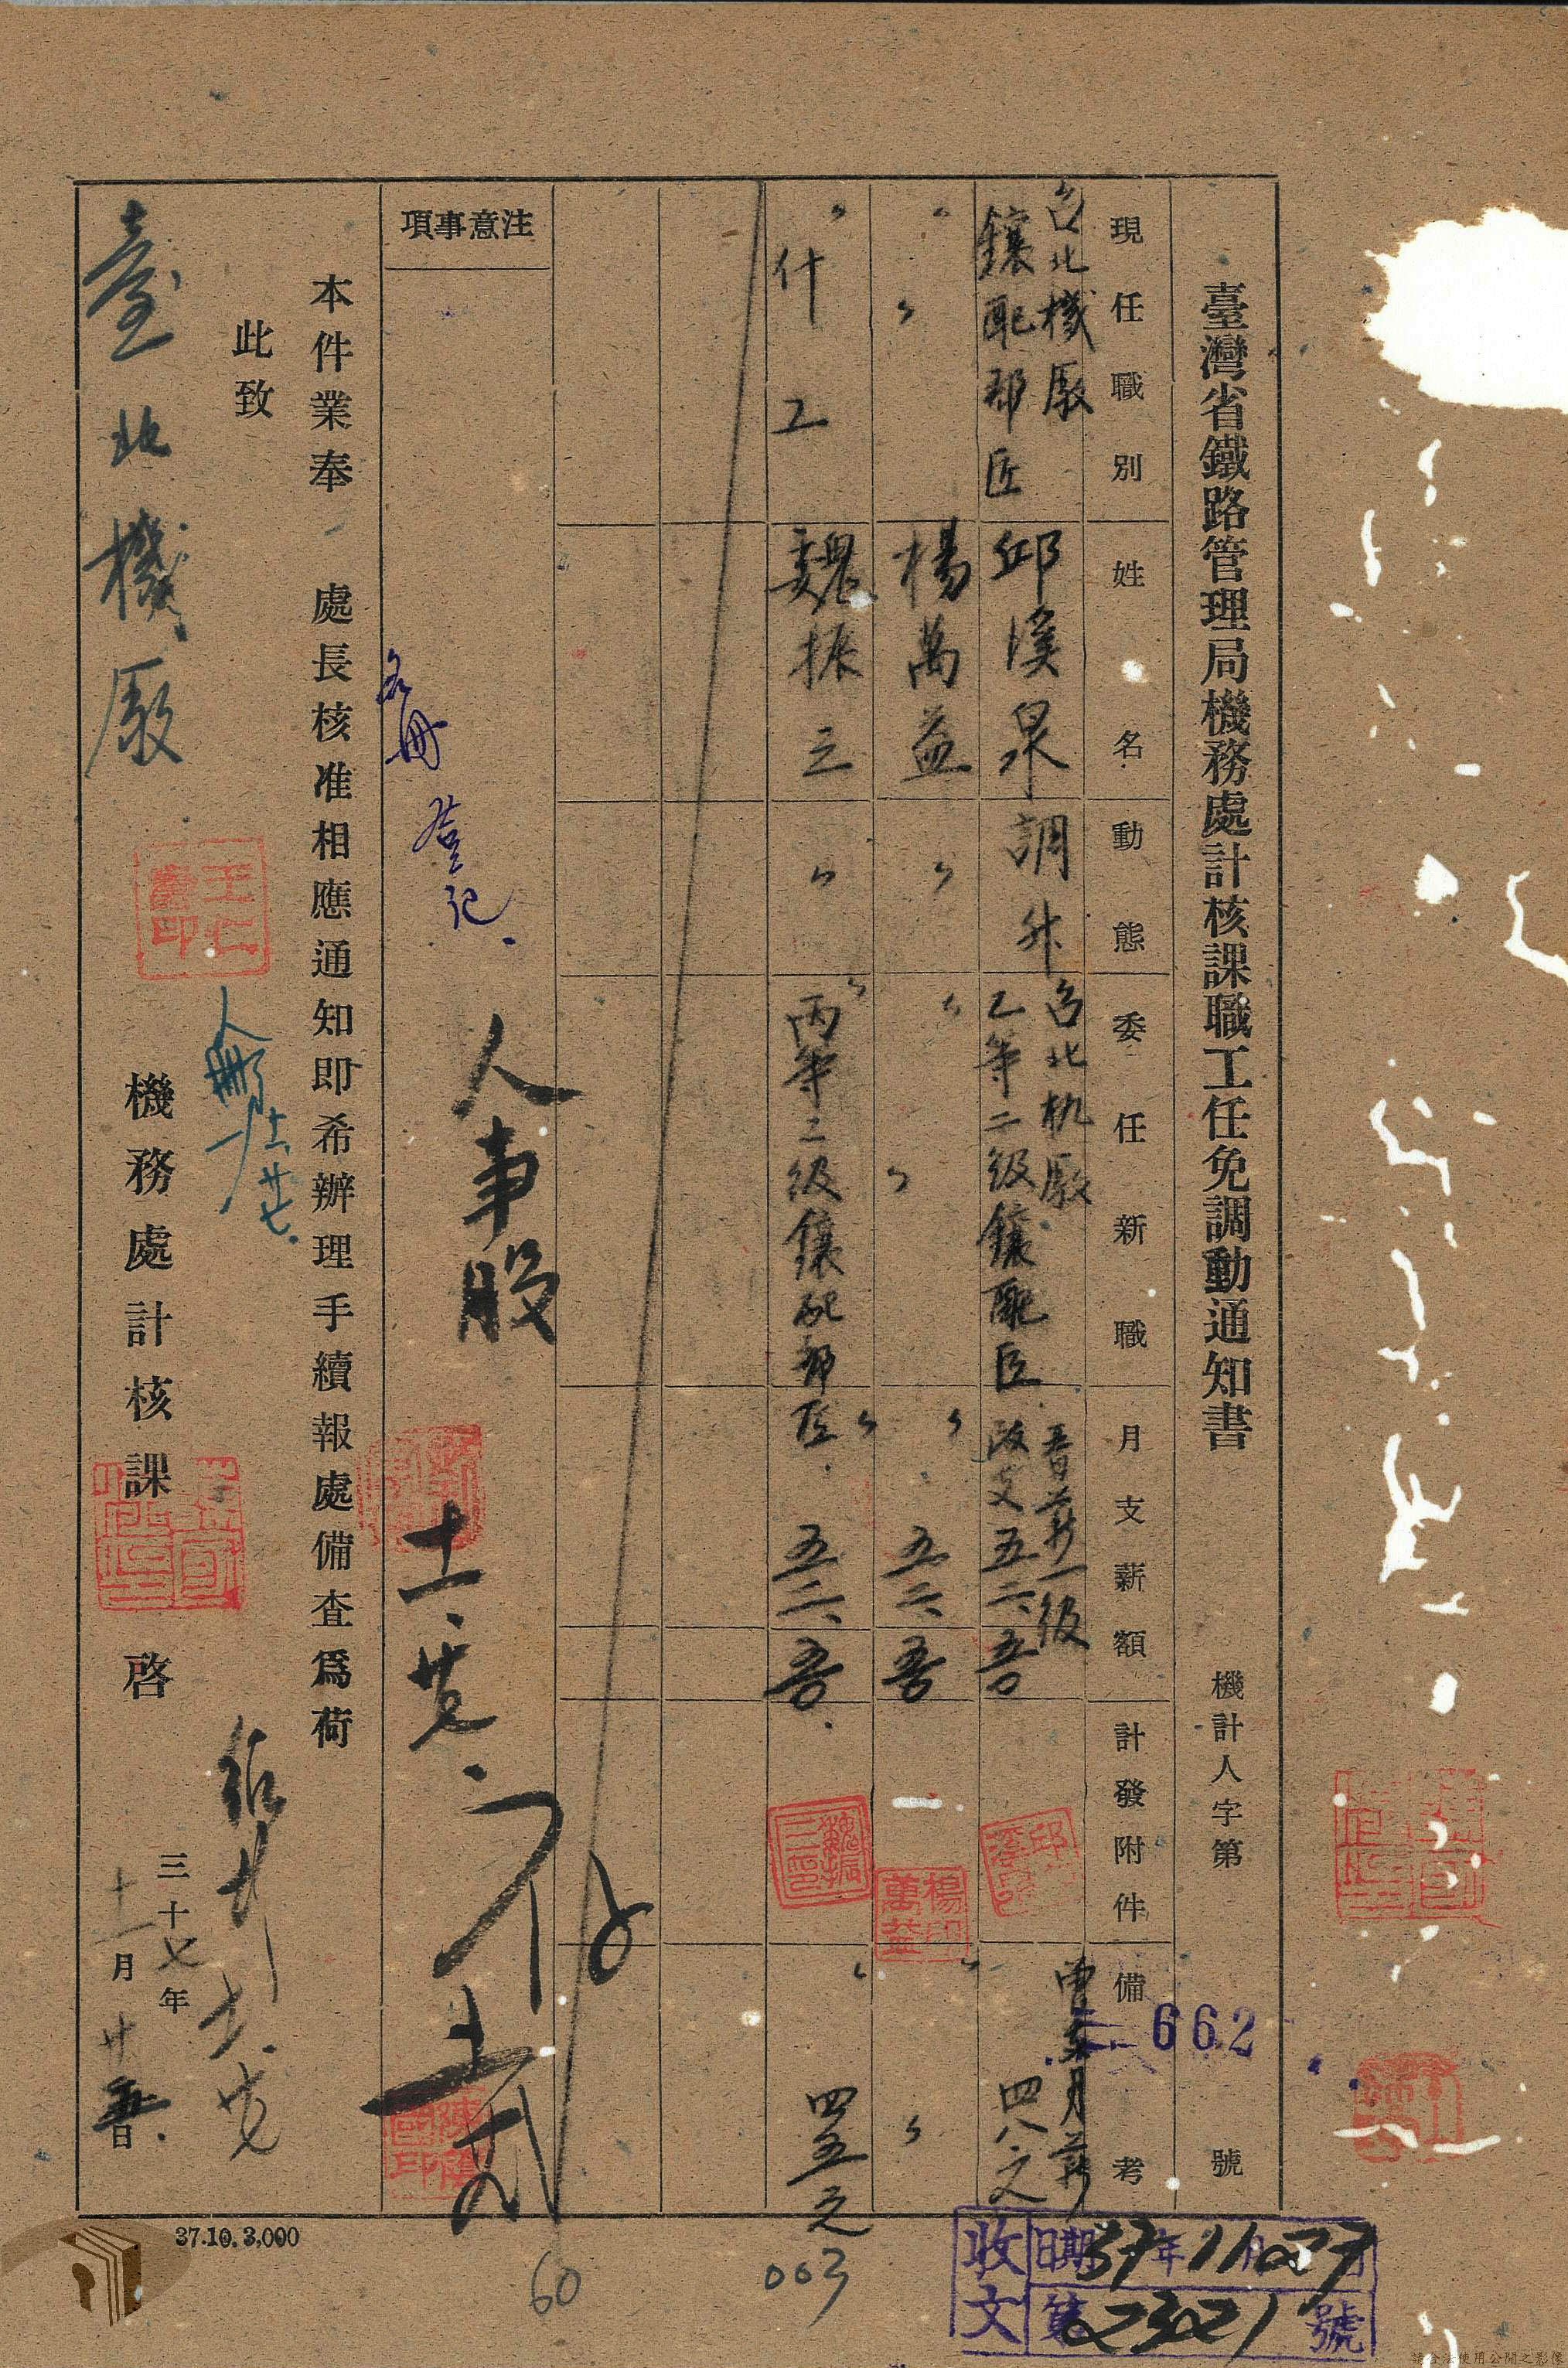 臺灣省鐵路管理局機務處計核課職工任免調動通知書
機計人字第 662 號
現任職別
姓名
動態
委任新職
月支薪額
計發附件
備考
台北機廠
鑲配部匠
邱溪泉
調升
台北机廠
乙等二級鑲配匠
晋薪一級
改支五六、
曾支月薪
四八元
〃
〃
楊萬益
〃
〃
〃
〃
五六、
楊印萬益
〃
〃
什工
魏振三
〃
〃
丙等二級鑲配部匠
〃
五二、
魏振三印
〃
四五元
注意事項
名冊登記
人事股
本件業奉 處長核准相應通知即希辦理手續報處備查為荷
此致
臺北機廠
王仁
機務處計核課 啓
三十七年
十一月廿五日
37.10.3,000
60
003
收文
日期 37年11月27日
第 2321 號
請合法使用公開之影像